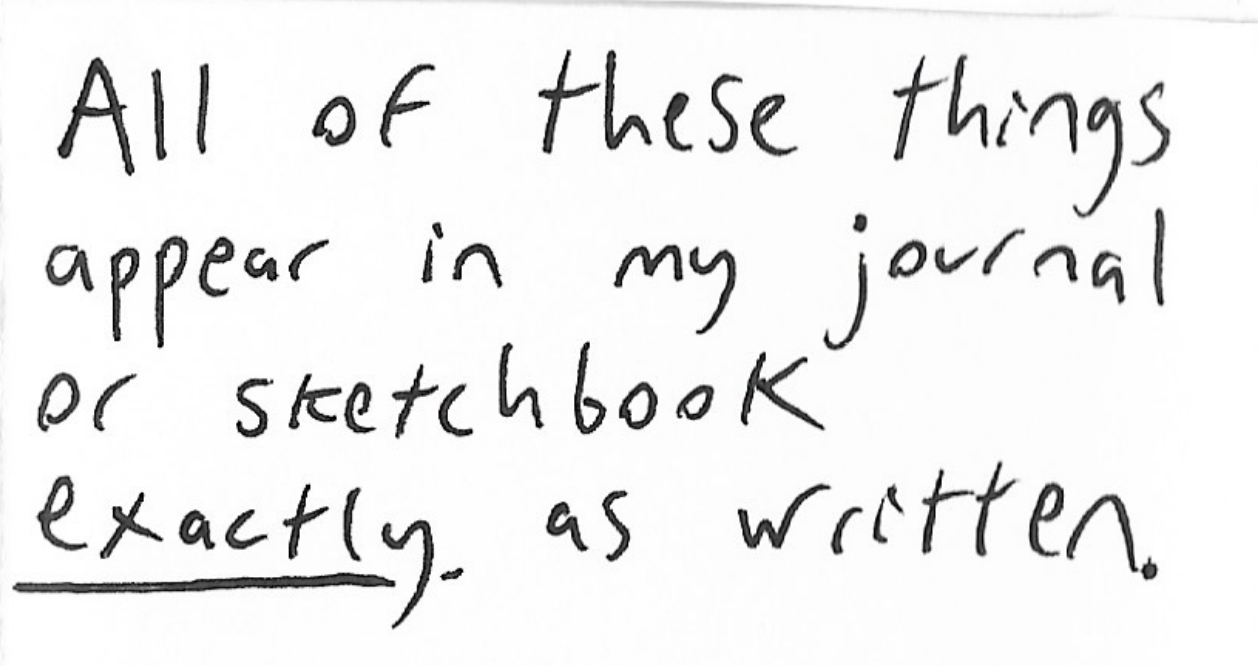 All of these things
appear in my journal
or sketchbook
exactly as written.